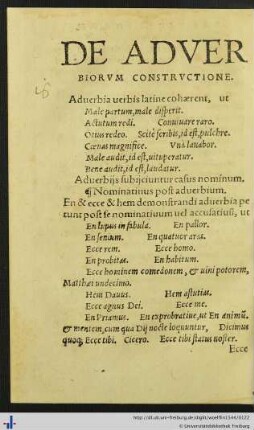 DE ADVER
BIORVM CONSTRVCTIONE.
Aduerbia uerbis latine cohærent, ut
Male partum, male disperit.
Actutum redi. Conuiuare raro.
Otius redeo. Scitè scribis, id est, pulchre.
Cœnas magnifice. Vnà lauabor.
Male audit, id est, uituperatur.
Bene audit, id est, laudatur.
Aduerbijs subijciuntur casus nominum.
¶ Nominatiuus post aduerbium.
En & ecce & hem demonstrandi aduerbia pe
tunt post se nominatiuum uel accusatiuū, ut
En lupus in fabula. En pallor.
En senium. En quatuor aras.
Ecce rem. Ecce homo.
En probitas. En habitum.
Ecce hominem comedonem, & uini potorem,
Matthæi undecimo.
Hem Dauus. Hem astutias.
Ecce agnus Dei. Ecce me.
En Priamus. En exprobratiue, ut En animū,
& mentem, cum qua Dij nocte loquuntur, Dicimus
quoq; Ecce tibi. Cicero. Ecce tibi status noster.
Ecce
http://dl.ub.uni-freiburg.de/diglit/
© Universitätsbibliothek Freiburg